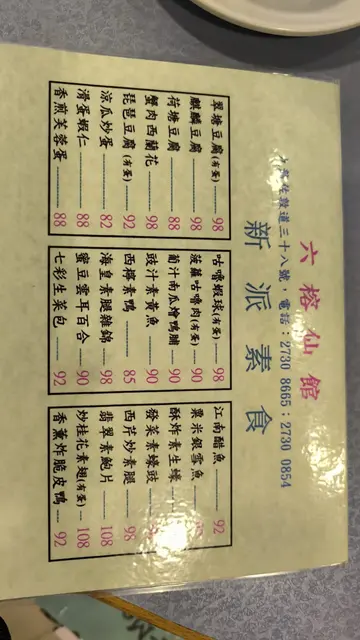 六榕仙館
九龍佐敦道三十八號，電話：2730 8665；2730 0854
新派素食
翠塘豆腐(有蛋) 98
麒麟豆腐 98
荷塘豆腐 88
蟹肉西蘭花 98
琵琶豆腐(有蛋) 92
涼瓜炒蛋 82
滑蛋蝦仁 88
香煎芙蓉蛋 88
咕嚕蝦球(有蛋) 98
菠蘿咕嚕肉(有蛋) 90
葡汁南瓜燴鴨脯 90
豉汁素黃魚 90
西檸素鴨 85
海皇素腿雜錦 98
蜜豆雲耳百合 90
七彩生菜包 92
江南醋魚 92
粟米銀雪魚
酥炸素生蠔
發菜素蠔豉
西芹炒素腿 98
翡翠素鮑片 108
炒桂花素翅(有蛋) 108
香薰炸脆皮鴨 92